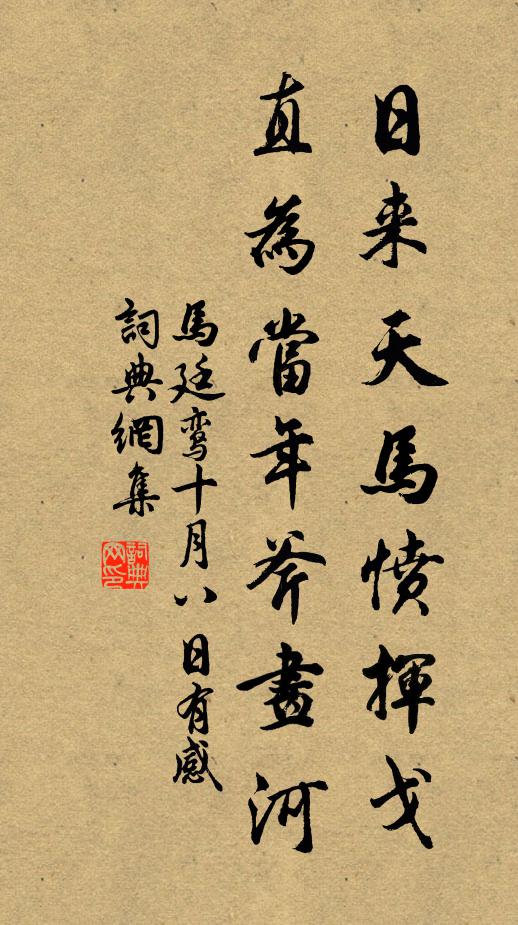 日来天馬憤揮戈
直為當年斧畫河
馬廷鸾十月八日有感
詞典網集
詞典網印